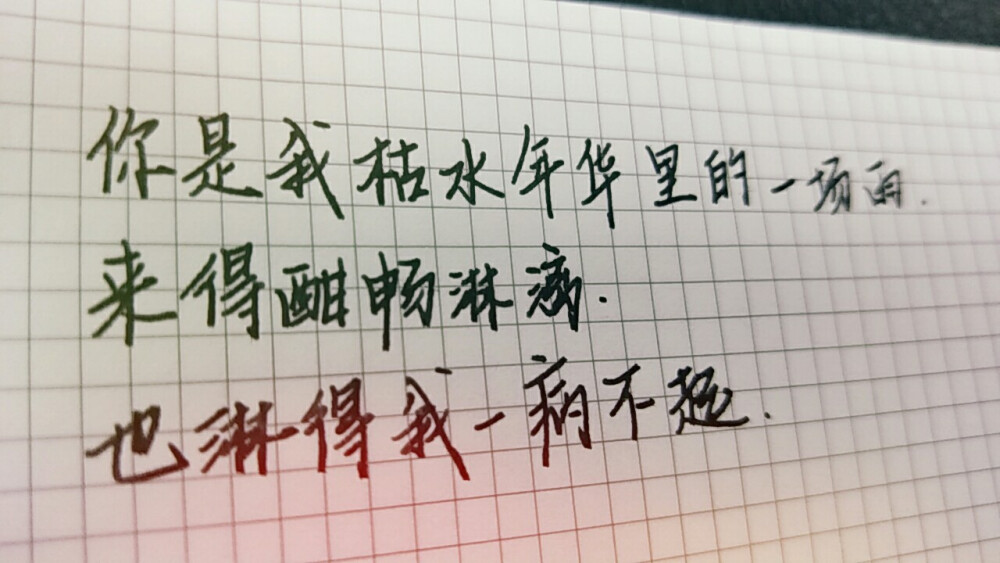 你是我枯水年华里的一场雨.
来得酣畅淋漓.
也淋得我一病不起.